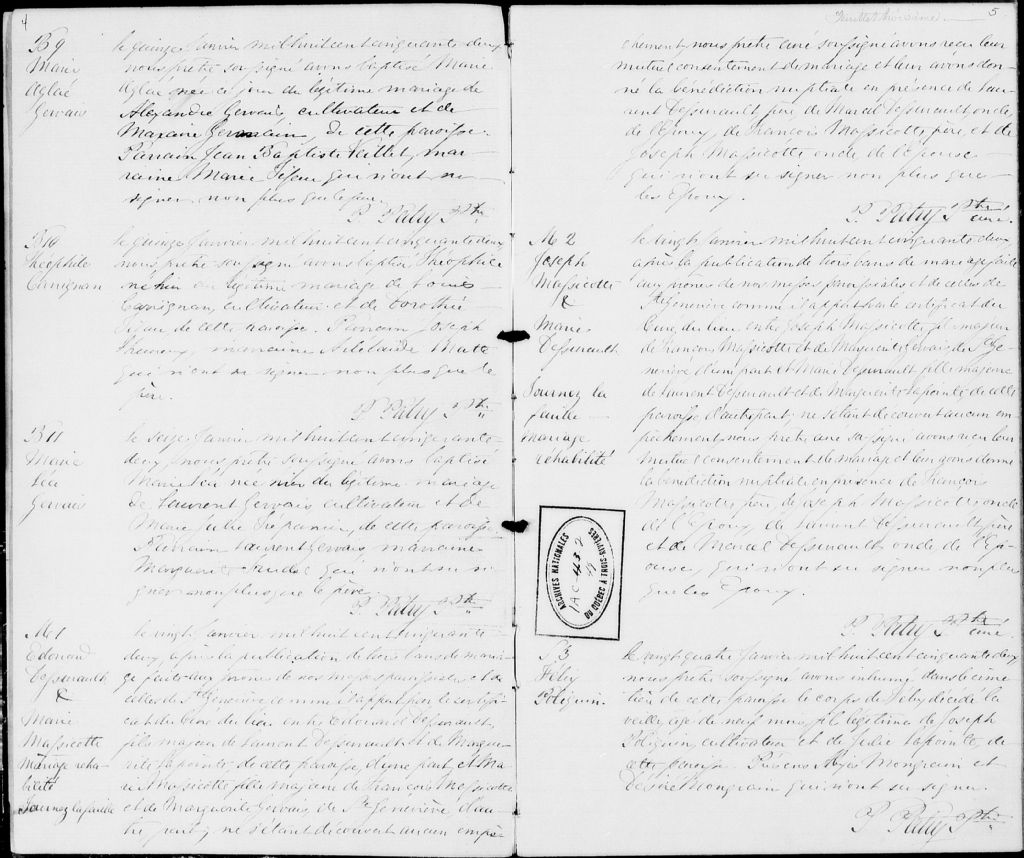 4
B 9
Marie
Aglaé
Gervais
le quinze Janvier mil huit cent cinquante deux
nous prêtre soussigné avons baptisé Marie
Aglaé née ce jour du légitime mariage de
Alexandre Gervais cultivateur et de
Maxaire Germain, de cette paroisse.
Parrain Jean Baptiste Veillet, mar-
raine Marie qui n'ont su
signer non plus que le père
P. Patry Ptre
B 10
Théophile
Carignan
le quinze Janvier mil huit cent cinquante deux
nous, prêtre soussigné avons baptisé Théophile
né hier du légitime mariage de Louis
Carignan cultivateur et de Dorothée
de cette paroisse. Parrain Joseph
marraine Adélaïde Matte
qui n'ont su signer non plus que le
père.
P. Patry Ptre
B 11
Marie
Léa
Gervais
le seize Janvier mil huit cent cinquante-
deux, nous prêtre soussigné avons baptisé
Marie Léa née hier du légitime mariage
de Laurent Gervais cultivateur et de
Marie Julie de cette paroisse
Parrain Laurent Gervais marraine
Marguerite qui n'ont su si-
gner non plus que le père
P. Patry Ptre
M 1
Edouard
Dessureault
&
Marie
Massicotte
Mariage réha-
bilité
Tournez la feuille
le vingt Janvier mil huit cent cinquante-
deux, après la publication de trois bans de maria-
ge faite aux prônes de nos messes paroissiales et de
celles de Ste Geneviève comme il appert par le certifi-
cat du Curé du lieu entre Edouard Dessureault,
fils majeur de Laurent Dessureault et de Margue-
rite Lapointe de cette paroisse, d'une part et Ma-
rie Massicotte fille majeure de François Massicotte
et de Marguerite Gervais, de Ste Geneviève d'au-
tre part; ne s'étant découvert aucun empê-
5
Feuillet troisième.
chement, nous prêtre curé soussigné avons reçu leur
mutuel consentement de mariage et leur avons don-
né la bénédiction nuptiale en présence de Lau-
rent Dessureault père, de Marcel Dessureault oncle
de l'Epoux, de François Massicotte, père, et de
Joseph Massicotte oncle de l'épouse
qui n'ont su signer non plus que
les Epoux.
P. Patry Ptre curé.
M 2
Joseph
Massicotte
&
Marie
Dessureault
Tournez la
feuille
Mariage
réhabilité
le vingt Janvier mil huit cent cinquante deux,
après la publication de trois bans de mariage faite
aux prônes de nos messes paroissiales et de celles de
Ste Geneviève comme il appert par le certificat du
Curé du lieu entre Joseph Massicotte, fils majeur
de François Massicotte et de Marguerite Gervais de Ste Ge-
neviève d'une part et Marie Dessureault fille majeure
de Laurent Dessureault et de Marguerite Lapointe de cette
paroisse d'autre part; ne s'étant découvert aucun em-
pêchement nous prêtre curé soussigné avons reçu leur
mutuel consentement de mariage et leur avons donné
la bénédiction nuptiale en présence de François
Massicotte père, de Joseph Massicotte oncle
de l'Epoux, de Laurent Dessureault père
et de Marcel Dessureault oncle de l'Epou-
se, qui n'ont su signer non plus
que les Epoux.
P. Patry Ptre curé.
ARCHIVES NATIONALES
DU QUÉBEC À TROIS-RIVIÈRES
S 3
Félix
le vingt quatre Janvier mil huit cent cinquante deux
nous prêtre soussigné avons inhumé dans le cime-
tière de cette paroisse le corps de Félix décédé la
veille âgé de neuf mois fils légitime de Joseph
cultivateur et de Julie Lapointe, de
cette paroisse. Présens Mongrain et
Désiré Mongrain qui n'ont su signer.
P. Patry Ptre